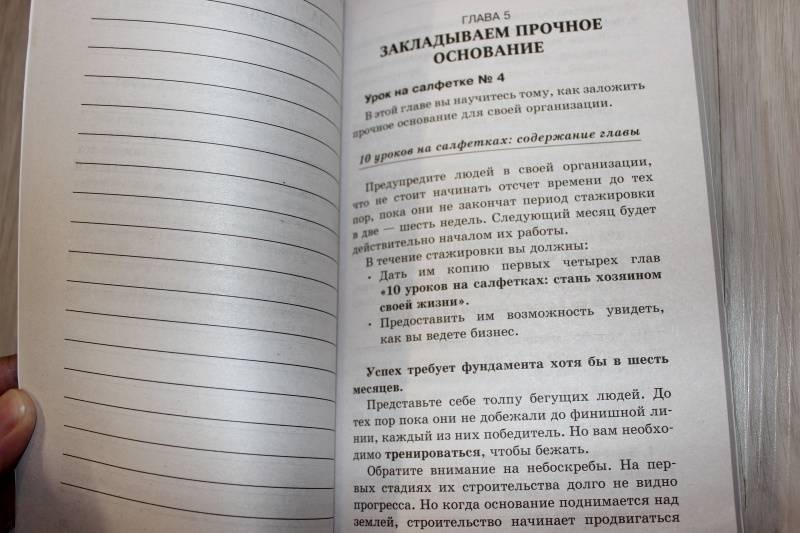 ГЛАВА 5
ЗАКЛАДЫВАЕМ ПРОЧНОЕ
ОСНОВАНИЕ
Урок на салфетке № 4
В этой главе вы научитесь тому, как заложить
прочное основание для своей организации.
10 уроков на салфетках: содержание главы
Предупредите людей в своей организации,
что не стоит начинать отсчет времени до тех
пор, пока они не закончат период стажировки
в две — шесть недель. Следующий месяц будет
действительно началом их работы.
В течение стажировки вы должны:
• Дать им копию первых четырех глав
«10 уроков на салфетках: стань хозяином
своей жизни».
• Предоставить им возможность увидеть,
как вы ведете бизнес.
Успех требует фундамента хотя бы в шесть
месяцев.
Представьте себе толпу бегущих людей. До
тех пор пока они не добежали до финишной ли-
нии, каждый из них победитель. Но вам необхо-
димо тренироваться, чтобы бежать.
Обратите внимание на небоскребы. На пер-
вых стадиях их строительства долго не видно
прогресса. Но когда основание поднимается над
землей, строительство начинает продвигаться